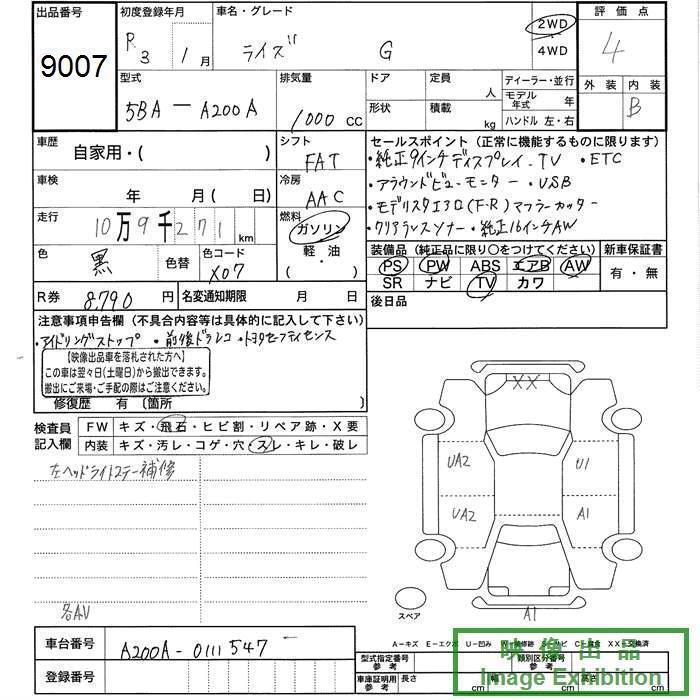 出品番号 初度登録年月 車名・グレード 評価点
9007 R3 1月 ライズ G 2WD 4WD 4
外装 内装
B
型式 排気量 ドア 定員 人 ディーラー・並行
5BA-A200A 1000 CC 形状 積載 kg モデル年式 年
ハンドル 左・右
車歴 シフト セールスポイント(正常に機能するものに限ります)
自家用・( ) FAT ・純正9インチディスプレイ-TV ・ETC
車検 冷房 ・アラウンドビューモニター ・USB
年 月(日) AAC ・モデリスタエアロ(F・R)マフラーカッター
走行 燃料 ・クリアランスソナー ・純正16インチAW
10万9千271km ガソリン
軽・油
( )
装備品(純正品に限り○をつけてください) 新車保証書
色 色替 色コード PS PW ABS エアB AW 有・無
黒 X07 SR ナビ TV カワ
R券 8,790円 名変通知期限 月 日 後日品
注意事項申告欄(不具合内容等は具体的に記入して下さい)
・アイドリングストップ ・前後ドラレコ ・トヨタセーフティセンス
【映像出品車を落札された方へ】
この車は翌々日(土曜日)から搬出できます。
搬出にご来場・ご手配の際はご注意ください。
修復歴 有 〔箇所 〕
検査員記入欄 FW キズ・飛石・ヒビ割・リペア跡・X要
内装 キズ・汚レ・コゲ・穴・スレ・キレ・破レ
左ヘッドライトステー補修
XX
UA2 U1
UA2 A1
A1
スペア
各AV
A-キズ E-エクボ U-凹み
車台番号 A200A-0111547
登録番号
型式指定番号 参考 類別区分番号 参考
車庫証明用 参考 長さ cm 幅 cm 高さ cm
映像出品
Image Exhibition